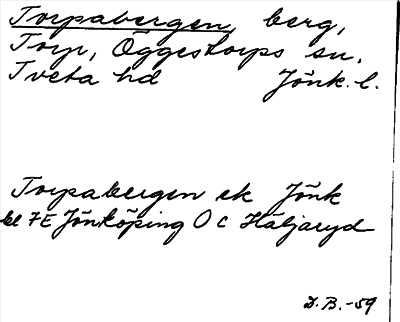 Torpabergen, berg,
Torp, Öggestorps sn.
Tveta hd Jönk. l.
Torpabergen ek Jönk
bl 7E Jönköping O c Häljaryd
D.B.-59